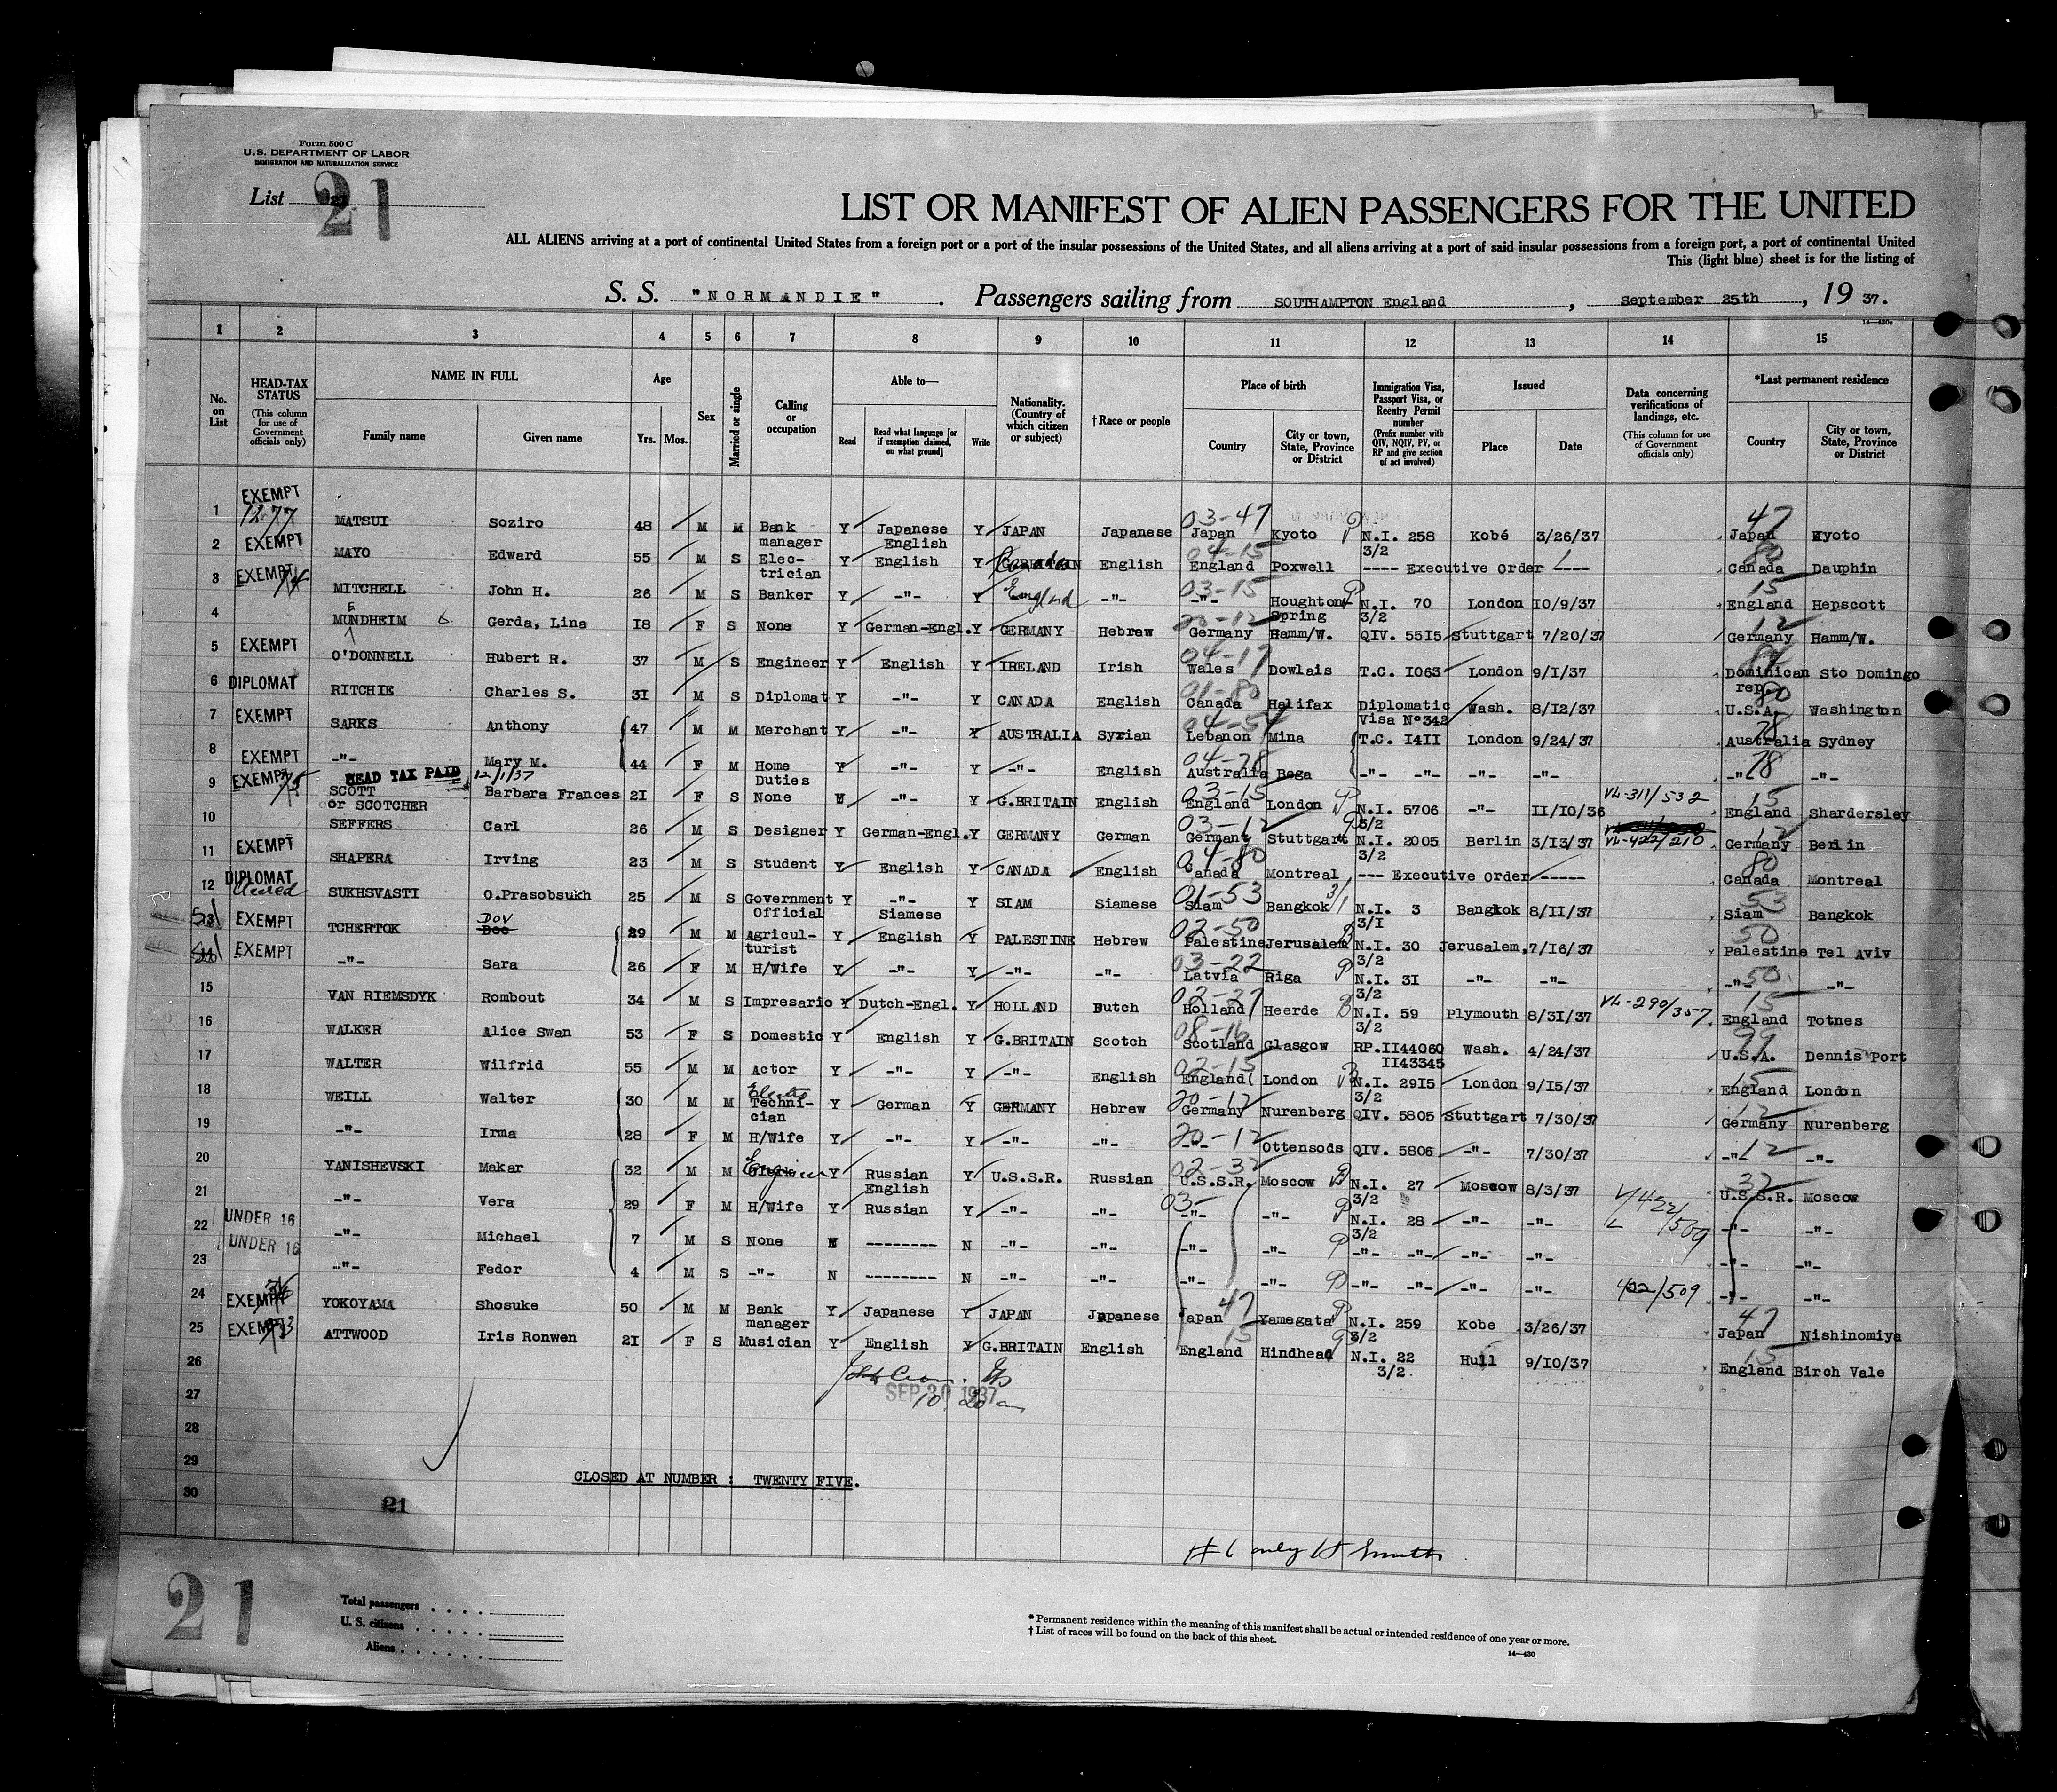 Form 500 C
U.S. DEPARTMENT OF LABOR
IMMIGRATION AND NATURALIZATION SERVICE
List 21
LIST OR MANIFEST OF ALIEN PASSENGERS FOR THE UNITED
ALL ALIENS arriving at a port of continental United States from a foreign port or a port of the insular possessions of the United States, and all aliens arriving at a port of said insular possessions from a foreign port, a port of continental United
This (light blue) sheet is for the listing of
S. S. "NORMANDIE" . Passengers sailing from SOUTHAMPTON England , September 25th , 19 37.
14—430c
1 2 3 4 5 6 7 8 9 10 11 12 13 14 15
No. on List
HEAD-TAX STATUS (This column for use of Government officials only)
NAME IN FULL
Family name Given name
Age Yrs. Mos.
Sex
Married or single
Calling or occupation
Able to—
Read Read what language [or if exemption claimed, on what ground] Write
Nationality. (Country of which citizen or subject)
†Race or people
Place of birth
Country City or town, State, Province or District
Immigration Visa, Passport Visa, or Reentry Permit number (Prefix number with QIV, NQIV, PV, or RP and give section of act involved)
Issued
Place Date
Data concerning verifications of landings, etc. (This column for use of Government officials only)
*Last permanent residence
Country City or town, State, Province or District
1 EXEMPT MATSUI Soziro 48 M M Bank manager Y Japanese English Y JAPAN Japanese 03-47 Japan Kyoto N.I. 258 3/2 Kobé 3/26/37 47 Japan Kyoto
2 EXEMPT MAYO Edward 55 M S Elec-trician Y English Y G.BRITAIN Canada English 04-15 England Poxwell ---- Executive Order ---- 80 Canada Dauphin
3 EXEMPT MITCHELL John H. 26 M S Banker Y -"- Y England -"- 03-15 -"- Houghton-Spring N.I. 70 3/2 London 10/9/37 15 England Hepscott
4 MUNDHEIM E Gerda, Lina 18 F S None Y German-Engl. Y GERMANY Hebrew 20-12 Germany Hamm/W. QIV. 5515 Stuttgart 7/20/37 12 Germany Hamm/W.
5 EXEMPT O'DONNELL Hubert R. 37 M S Engineer Y English Y IRELAND Irish 04-17 Wales Dowlais T.C. 1063 London 9/1/37 Dominican rep. Sto Domingo
6 DIPLOMAT RITCHIE Charles S. 31 M S Diplomat Y -"- Y CANADA English 01-80 Canada Halifax Diplomatic Visa N°342 Wash. 8/12/37 80 U.S.A. Washington
7 EXEMPT SARKS Anthony 47 M M Merchant Y -"- Y AUSTRALIA Syrian 04-54 Lebanon Mina T.C. 1411 London 9/24/37 78 Australia Sydney
8 EXEMPT -"- Mary M. 44 F M Home Duties Y -"- Y -"- English 04-78 Australia Bega -"- -"- -"- -"- 78 -"- -"-
9 EXEMPT HEAD TAX PAID 12/1/37 SCOTT or SCOTCHER Barbara Frances 21 F S None Y -"- Y G.BRITAIN English 03-15 England London N.I. 5706 3/2 -"- 11/10/36 VL-311/532 15 England Shardersley
10 SEFFERS Carl 26 M S Designer Y German-Engl. Y GERMANY German 03-12 Germany Stuttgart N.I. 2005 3/2 Berlin 3/13/37 VL-422/210 12 Germany Berlin
11 EXEMPT SHAPERA Irving 23 M S Student Y English Y CANADA English 04-80 Canada Montreal --- Executive Order ----- 80 Canada Montreal
12 DIPLOMAT SUKHSVASTI O.Prasobsukh 25 M S Government Official Y -"- Siamese Y SIAM Siamese 01-53 Siam Bangkok 3/1 N.I. 3 3/1 Bangkok 8/11/37 53 Siam Bangkok
13 EXEMPT TCHERTOK DOV 29 M M Agricul-turist Y English Y PALESTINE Hebrew 02-50 Palestine Jerusalem N.I. 30 3/2 Jerusalem, 7/16/37 50 Palestine Tel Aviv
EXEMPT -"- Sara 26 F M H/Wife Y -"- Y -"- -"- 03-22 Latvia Riga N.I. 31 3/2 -"- -"- 50 -"- -"-
15 VAN RIEMSDYK Rombout 34 M S Impresario Y Dutch-Engl. Y HOLLAND Dutch 02-27 Holland Heerde N.I. 59 3/2 Plymouth 8/31/37 VL-290/357 15 England Totnes
16 WALKER Alice Swan 53 F S Domestic Y English Y G.BRITAIN Scotch 08-16 Scotland Glasgow RP.1144060 1143345 Wash. 4/24/37 99 U.S.A. Dennis Port
17 WALTER Wilfrid 55 M M Actor Y -"- Y -"- English 02-15 England London N.I. 2915 3/2 London 9/15/37 15 England London
18 WEILL Walter 30 M M Electro Techni-cian Y German Y GERMANY Hebrew 20-12 Germany Nurenberg QIV. 5805 Stuttgart 7/30/37 12 Germany Nurenberg
19 -"- Irma 28 F M H/Wife Y -"- Y -"- -"- 20-12 -"- Ottensods QIV. 5806 -"- 7/30/37 -"- 12 -"-
20 YANISHEVSKI Makar 32 M M Engineer Y Russian English Y U.S.S.R. Russian 02-32 U.S.S.R. Moscow N.I. 27 3/2 Moscow 8/3/37 32 U.S.S.R. Moscow
21 -"- Vera 29 F M H/Wife Y Russian Y -"- -"- 03- -"- -"- N.I. 28 3/2 -"- -"- V422/509 -"- -"-
22 UNDER 16 -"- Michael 7 M S None N -------- N -"- -"- -"- -"- -"- -"- -"- -"- -"- -"-
23 UNDER 16 -"- Fedor 4 M S -"- N -------- N -"- -"- -"- -"- -"- -"- -"- -"- 422/509 -"- -"-
24 EXEMPT YOKOYAMA Shosuke 50 M M Bank manager Y Japanese Y JAPAN Japanese Japan 47 Yamegata N.I. 259 3/2 Kobe 3/26/37 47 Japan Nishinomiya
25 EXEMPT ATTWOOD Iris Ronwen 21 F S Musician Y English Y G.BRITAIN English 15 England Hindhead N.I. 22 3/2 Hull 9/10/37 15 England Birch Vale
26
SEP 30 1937
27
28
29
CLOSED AT NUMBER : TWENTY FIVE.
30
21
#6 only
21
Total passengers
U. S. citizens
Aliens
* Permanent residence within the meaning of this manifest shall be actual or intended residence of one year or more.
† List of races will be found on the back of this sheet.
14—430